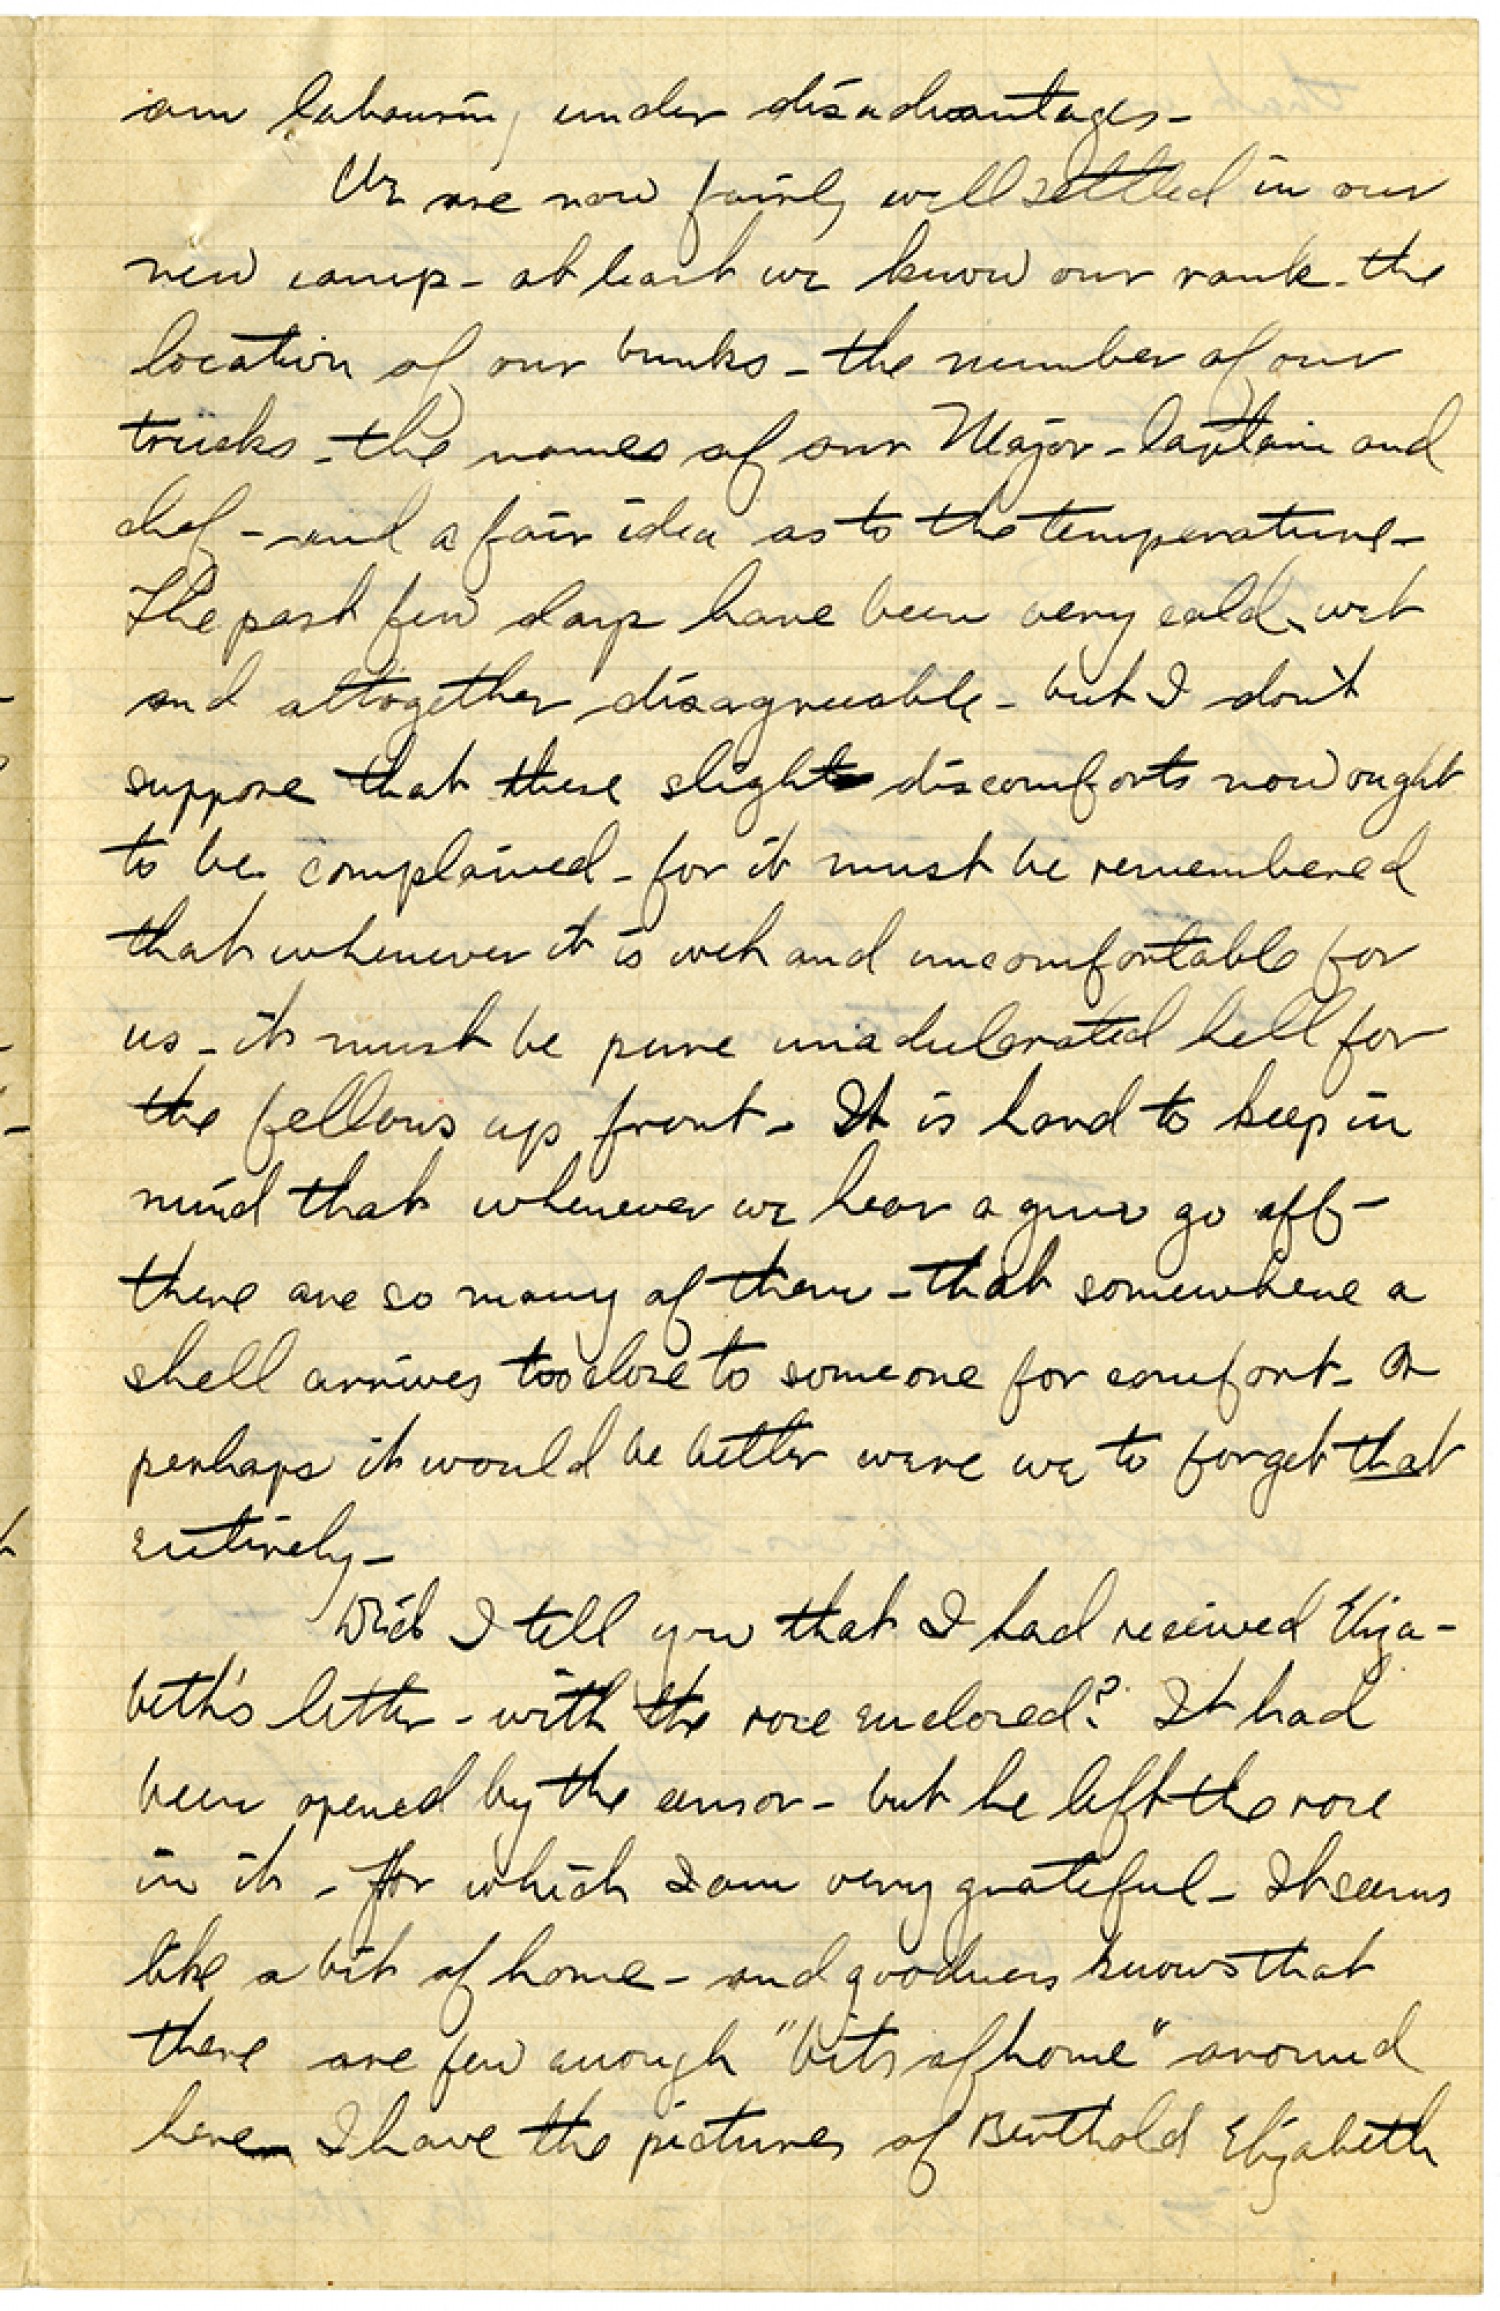 am labouring under disadvantages -
We are now fairly well settled in our
new camp - at least we know our rank - the
location of our bunks - the number of our
trucks - the names of our Major - Captain and
chef - and a fair idea as to the temperature -
The past few days have been very cold, wet
and altogether disagreeable - but I don't
suppose that these slight discomforts now ought
to be complained - for it must be remembered
that whenever it is wet and uncomfortable for
us - it must be pure unadulerated hell for
the fellows up front - It is hard to keep in
mind that whenever we hear a gun go off -
there are so many of them - that somewhere a
shell arrives too close to someone for comfort - Or
perhaps it would be better were we to forget that
entirely -
Did I tell you that I had received Eliza-
beth's letter - with the rose enclosed? It had
been opened by the censor - but he left the rose
in it - for which I am very grateful - It seems
like a bit of home - and goodness knows that
there are few enough "bits of home" around
here - I have the pictures of Berthold Elizabeth